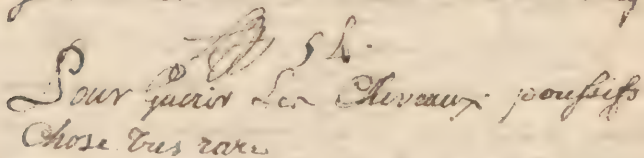 54.
Pour Guerir Les Chevaux poussifs
Chose tres rare